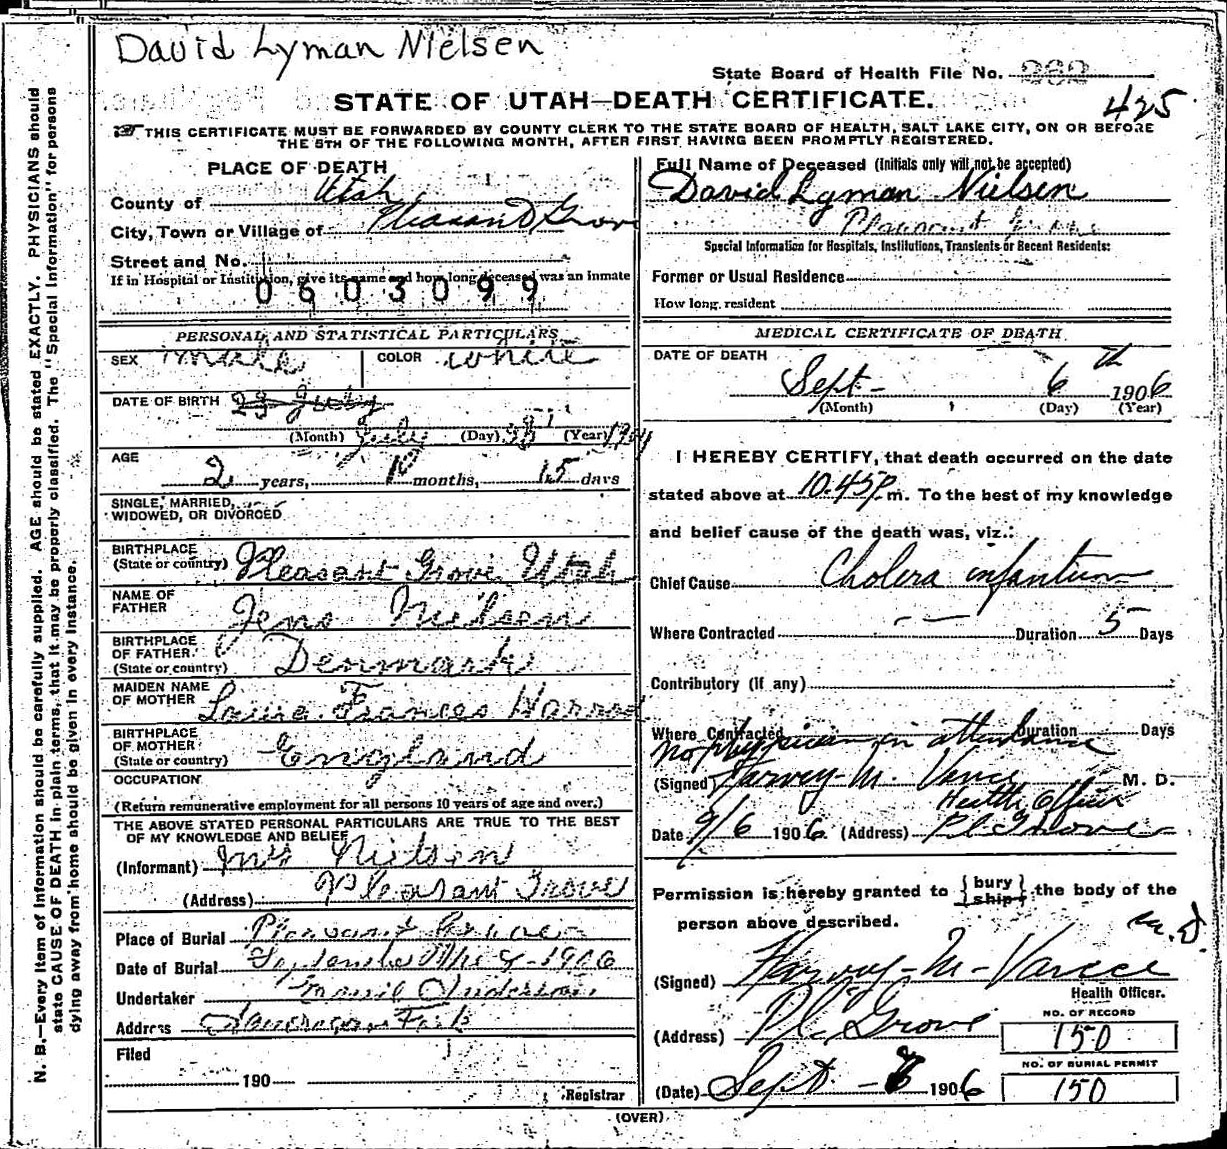 David Lyman Nielsen
State Board of Health File No. 262
STATE OF UTAH—DEATH CERTIFICATE.
425
THIS CERTIFICATE MUST BE FORWARDED BY COUNTY CLERK TO THE STATE BOARD OF HEALTH, SALT LAKE CITY, ON OR BEFORE
THE 5TH OF THE FOLLOWING MONTH, AFTER FIRST HAVING BEEN PROMPTLY REGISTERED.
PLACE OF DEATH
County of Utah
City, Town or Village of Pleasant Grove
Street and No.
If in Hospital or Institution, give its name and how long deceased was an inmate
0603099
PERSONAL AND STATISTICAL PARTICULARS
SEX male COLOR white
DATE OF BIRTH 23 July
(Month) July (Day) (Year) 1904
AGE
2 years, months, 15 days
SINGLE, MARRIED,
WIDOWED, OR DIVORCED
BIRTHPLACE
(State or country) Pleasant Grove Utah
NAME OF
FATHER Jens Nielsen
BIRTHPLACE
OF FATHER
(State or country) Denmark
MAIDEN NAME
OF MOTHER Frances
BIRTHPLACE
OF MOTHER
(State or country) England
OCCUPATION
(Return remunerative employment for all persons 10 years of age and over.)
THE ABOVE STATED PERSONAL PARTICULARS ARE TRUE TO THE BEST
OF MY KNOWLEDGE AND BELIEF
(Informant) Mrs Nielsen
(Address) Pleasant Grove
Place of Burial Pleasant Grove
Date of Burial September the 8-1906
Undertaker
Address American Fork
Filed
190
Registrar
Full Name of Deceased (Initials only will not be accepted)
David Lyman Nielsen
Pleasant Grove
Special Information for Hospitals, Institutions, Transients or Recent Residents:
Former or Usual Residence
How long resident
MEDICAL CERTIFICATE OF DEATH
DATE OF DEATH
Sept- 6th 1906
(Month) (Day) (Year)
I HEREBY CERTIFY, that death occurred on the date
stated above at 10.45 p. m. To the best of my knowledge
and belief cause of the death was, viz.:
Chief Cause Cholera infantum
Where Contracted Duration 5 Days
Contributory (If any)
Where Contracted Duration Days
No physician in attendance
(Signed) Harvey M. Vance M. D.
Health Officer
Date 9/6 1906 (Address) Pl Grove
Permission is hereby granted to {bury ship} the body of the
person above described.
M.D.
(Signed) Harvey M Vance
Health Officer.
(Address) Pl Grove
NO. OF RECORD
150
NO. OF BURIAL PERMIT
150
(Date) Sept 1906
(OVER)
N. B.—Every item of information should be carefully supplied. AGE should be stated EXACTLY. PHYSICIANS should
state CAUSE OF DEATH in plain terms, that it may be properly classified. The "Special Information" for persons
dying away from home should be given in every instance.